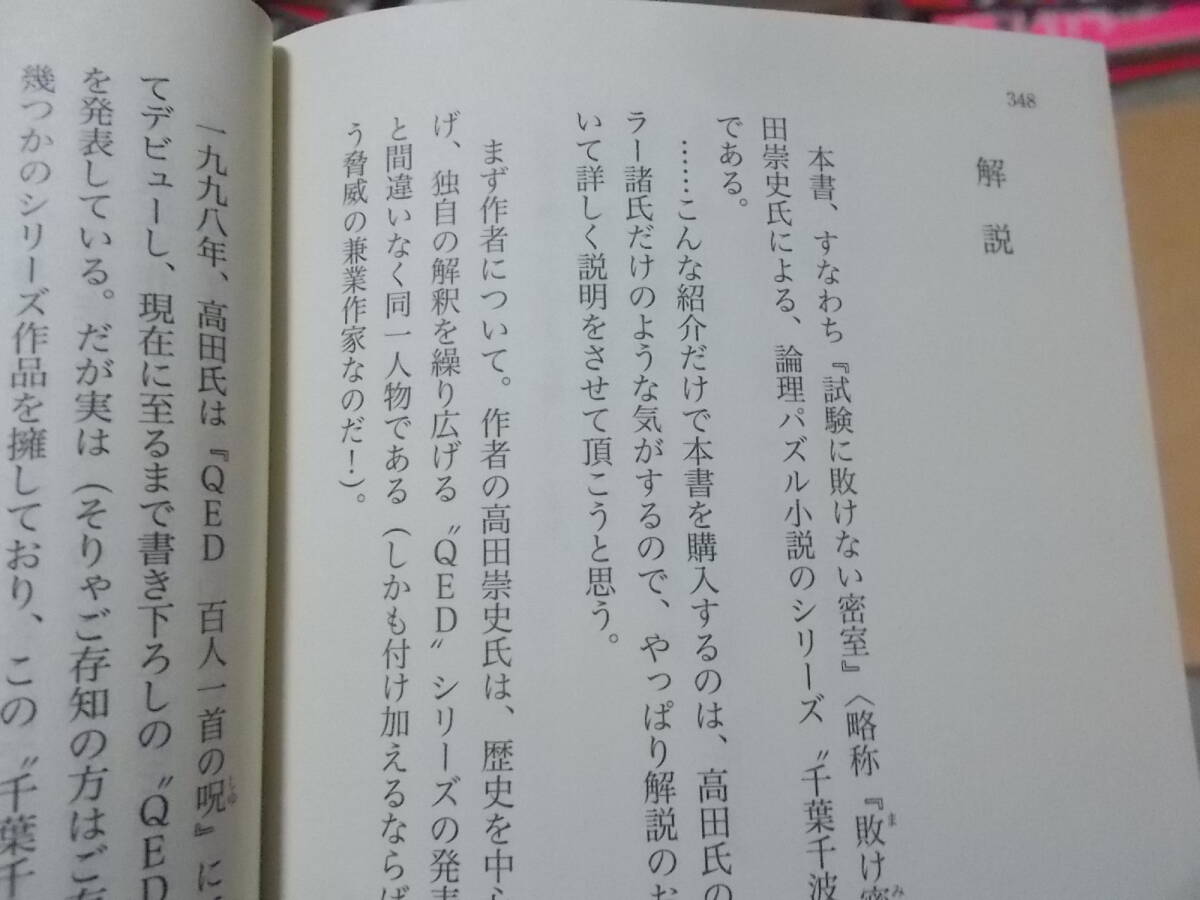 348
解説
本書、すなわち『試験に敗けない密室』〈略称『敗け密
田崇史氏による、論理パズル小説のシリーズ〝千葉千波
である。
……こんな紹介だけで本書を購入するのは、高田氏の
ラー諸氏だけのような気がするので、やっぱり解説のお
いて詳しく説明をさせて頂こうと思う。
まず作者について。作者の高田崇史氏は、歴史を中心
げ、独自の解釈を繰り広げる〝QED〟シリーズの発表
と間違いなく同一人物である（しかも付け加えるならば
う脅威の兼業作家なのだ！）。
一九九八年、高田氏は『QED 百人一首の呪』に
てデビューし、現在に至るまで書き下ろしの〝QED
を発表している。だが実は（そりゃご存知の方はご存
幾つかのシリーズ作品を擁しており、この〝千葉千